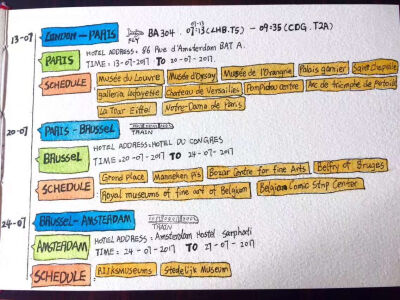 13-07
LONDON-PARIS FLY BA304. 07-13 07:13 (LHR.T5) - 09:35 (CDG.T2A)
PARIS HOTEL ADDRESS: 86 Rue d'Amsterdam BAT A.
TIME: 13-07-2017 TO 20-07-2017.
SCHEDULE Musée du Louvre Musée d'Orsay Musée de l'Orangrie Palais garnier Saint Chapelle
galleria lafayette Chateau de Versailles Pompidou Centre Arc de triomphe de
La Tour Eiffel Notre-Dame de Paris
20-07
PARIS-BRUSSEL TRAIN
BRUSSEL HOTEL ADDRESS: HOTEL DU CONGRES
TIME: 20-07-2017 TO 24-07-2017
SCHEDULE Grand Place Manneken Pis Bozar Centre for Fine Arts Belfry of Bruges
Royal museums of fine art of Belgium Belgian Comic Strip Center
24-07
BRUSSEL-AMSTERDAM TRAIN
AMSTERDAM HOTEL ADDRESS: Amsterdam Hostel Sarphati
TIME: 24-07-2017 TO 27-07-2017
SCHEDULE Rijksmuseums Stedelijk Museum